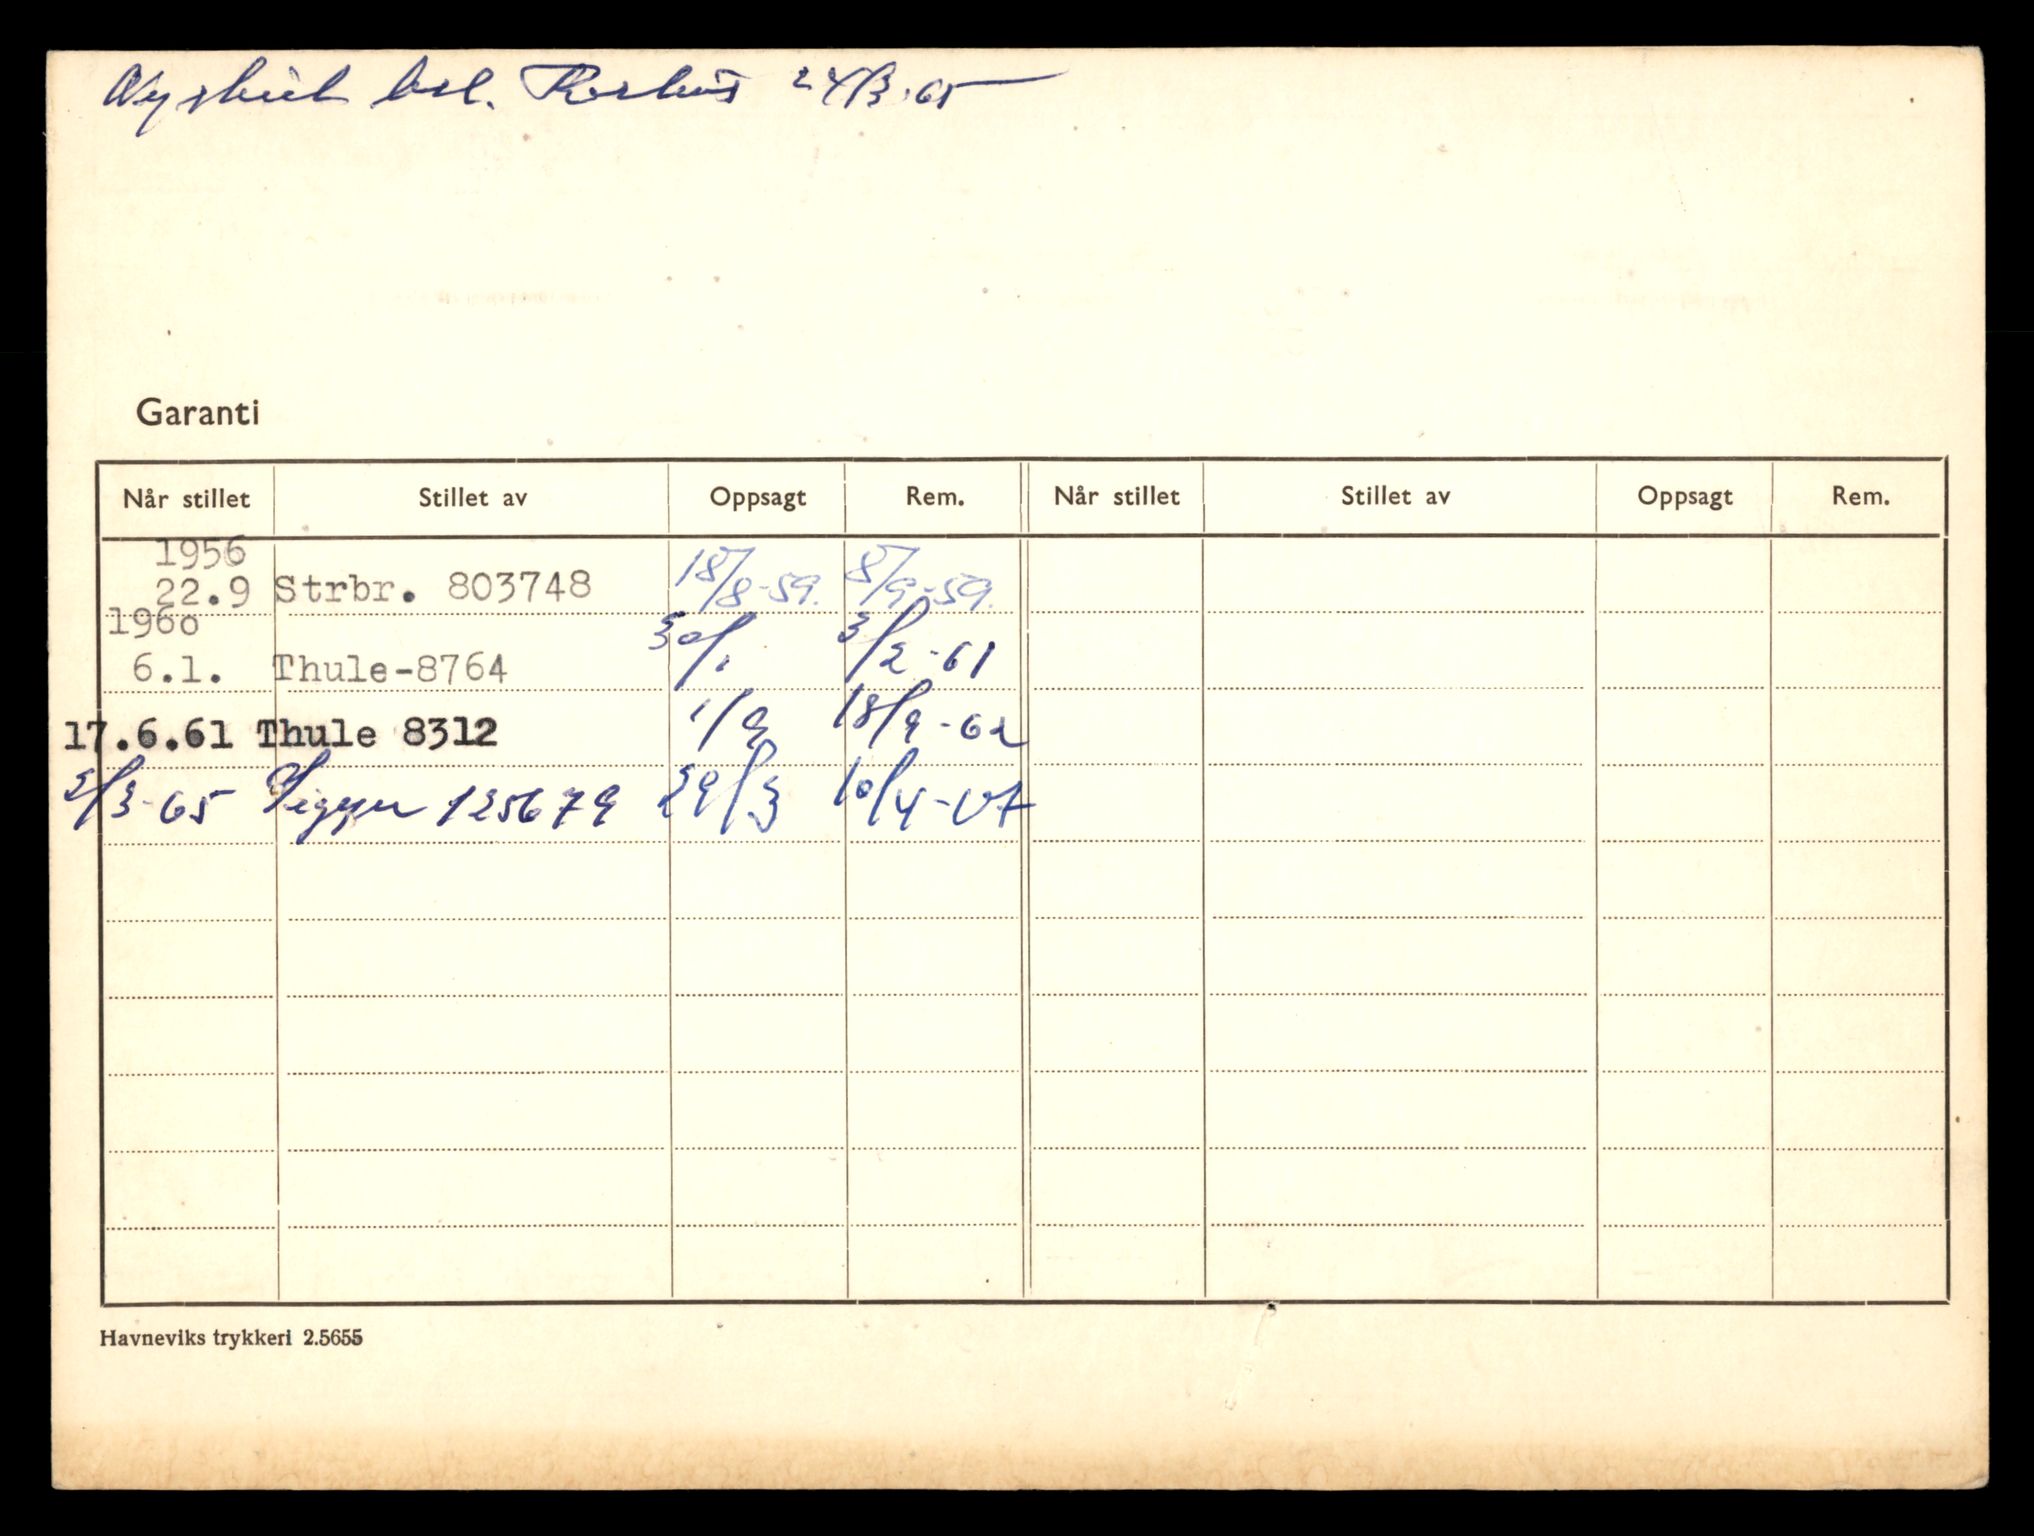 24/3-65
Garanti
Når stillet Stillet av Oppsagt Rem. Når stillet Stillet av Oppsagt Rem.
1956
22.9 Strbr. 803748 18/8-59. 8/9-59.
1960
6.1. Thule-8764 30/1 3/2-61
17.6.61 Thule 8312 1/9 18/9-62
2/3-65 125679 29/3 10/4-67
Havneviks trykkeri 2.5655